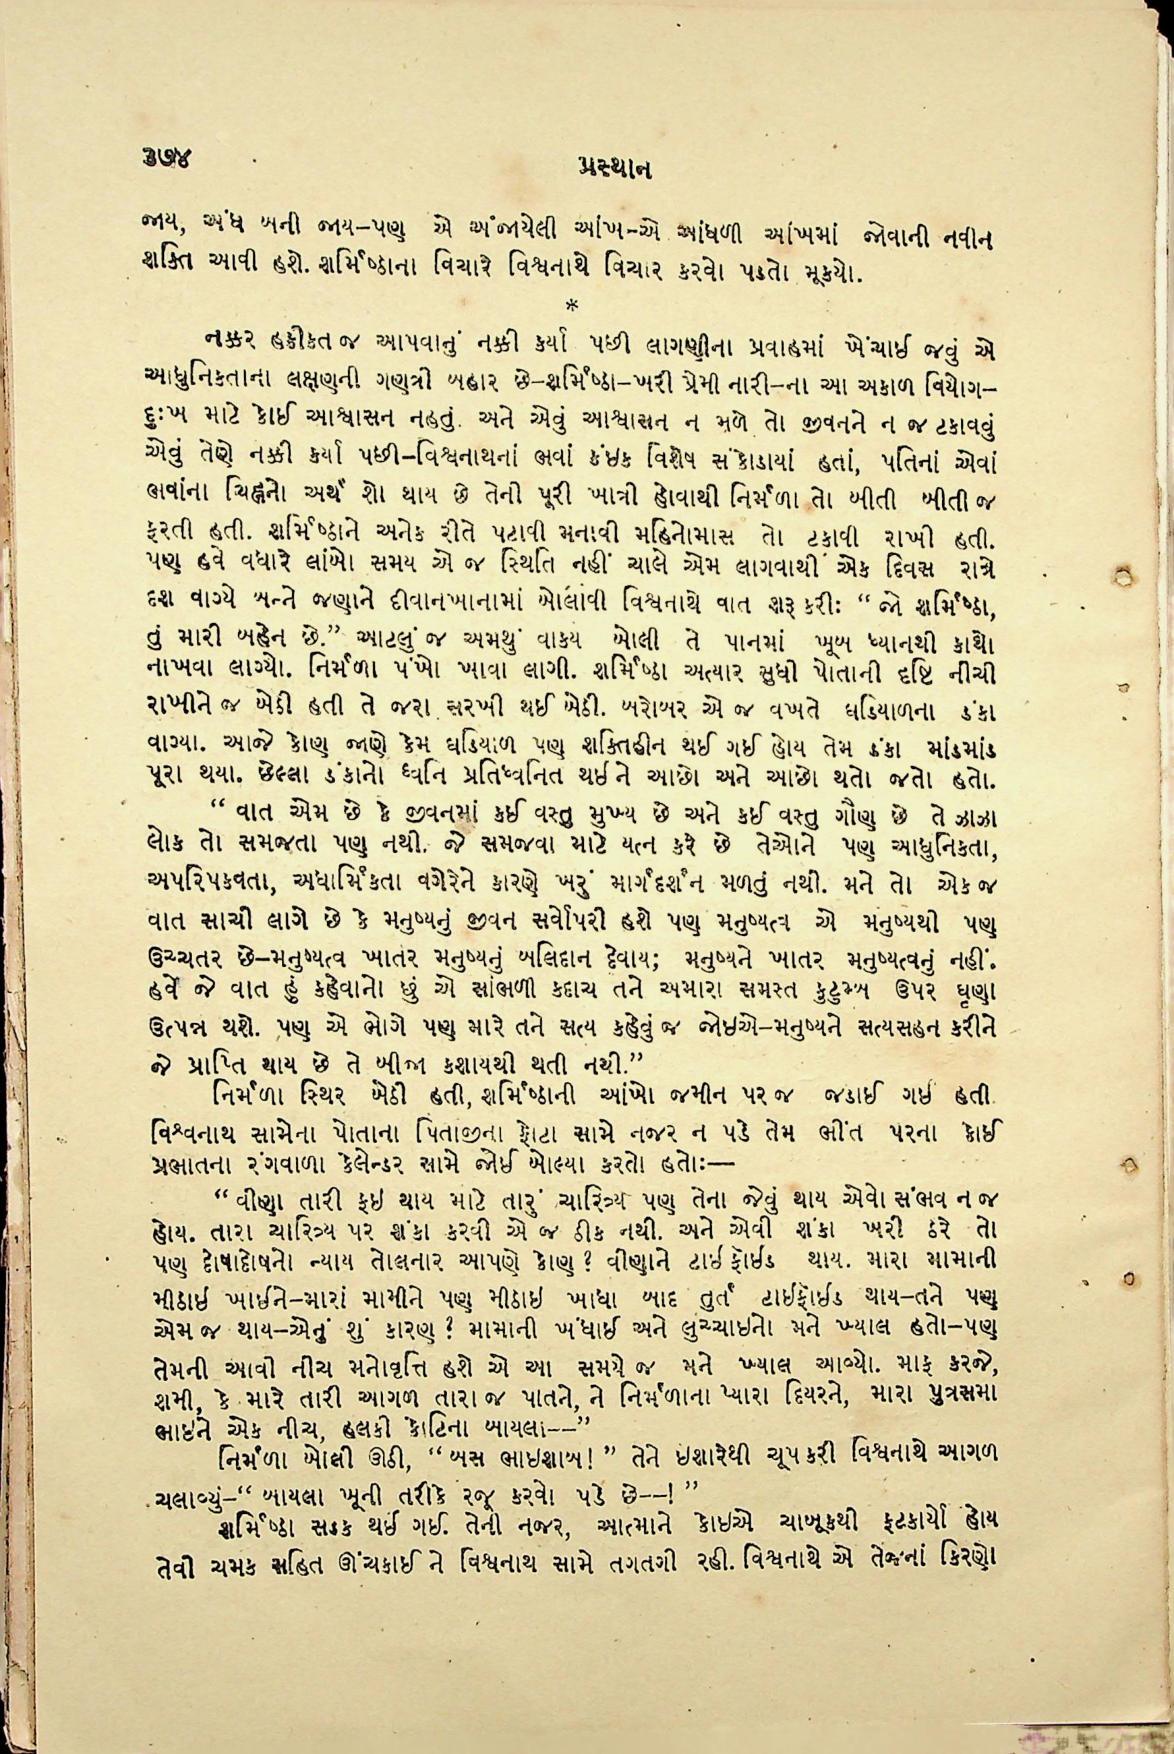 ૩૭૪
પ્રસ્થાન
જાય, અંધ બની જાય–પણ એ અંજાયેલી આંખ–એ આંધળી આંખમાં જોવાની નવીન
શક્તિ આવી હશે. શર્મિષ્ઠાના વિચારે વિશ્વનાથે વિચાર કરવો પડતો મૂકયો.
*
નક્કર હકીકત જ આપવાનું નક્કી કર્યા પછી લાગણીના પ્રવાહમાં ખેંચાઈ જવું એ
આધુનિકતાના લક્ષણની ગણત્રી બહાર છે–શર્મિષ્ઠા–ખરી પ્રેમી નારી–ના આ અકાળ વિયોગ–
દુઃખ માટે કોઈ આશ્વાસન નહતું અને એવું આશ્વાસન ન મળે તો જીવનને ન જ ટકાવવું
એવું તેણે નક્કી કર્યા પછી–વિશ્વનાથનાં ભવાં કંઇક વિશેષ સંકોડાયાં હતાં, પતિનાં એવાં
ભવાંના ચિહ્નનો અર્થ શો થાય છે તેની પૂરી ખાત્રી હોવાથી નિર્મળા તો બીતી બીતી જ
ફરતી હતી. શર્મિષ્ઠાને અનેક રીતે પટાવી મનાવી મહિનોમાસ તો ટકાવી રાખી હતી.
પણ હવે વધારે લાંબો સમય એ જ સ્થિતિ નહીં ચાલે એમ લાગવાથી એક દિવસ રાત્રે
દશ વાગ્યે બન્ને જણાને દીવાનખાનામાં બોલાવી વિશ્વનાથે વાત શરૂ કરી: “જો શર્મિષ્ઠા,
તું મારી બહેન છે.” આટલું જ અમથું વાકય બોલી તે પાનમાં ખૂબ ધ્યાનથી કાથો
નાખવા લાગ્યો. નિર્મળા પંખો ખાવા લાગી. શર્મિષ્ઠા અત્યાર સુધી પોતાની દૃષ્ટિ નીચી
રાખીને જ બેઠી હતી તે જરા સરખી થઈ બેઠી. બરોબર એ જ વખતે ઘડિયાળના ડંકા
વાગ્યા. આજે કોણ જાણે કેમ ઘડિયાળ પણ શક્તિહીન થઈ ગઈ હોય તેમ ડંકા માંડમાંડ
પૂરા થયા. છેલ્લા ડંકાનો ધ્વનિ પ્રતિધ્વનિત થઈને આછો અને આછો થતો જતો હતો.
“વાત એમ છે કે જીવનમાં કઈ વસ્તુ મુખ્ય છે અને કઈ વસ્તુ ગૌણ છે તે ઝાઝા
લોક તો સમજતા પણ નથી. જે સમજવા માટે યત્ન કરે છે તેઓને પણ આધુનિકતા,
અપરિપકવતા, અધાર્મિકતા વગેરેને કારણે ખરું માર્ગદર્શન મળતું નથી. મને તો એક જ
વાત સાચી લાગે છે કે મનુષ્યનું જીવન સર્વોપરી હશે પણ મનુષ્યત્વ એ મનુષ્યથી પણ
ઉચ્ચતર છે–મનુષ્યત્વ ખાતર મનુષ્યનું બલિદાન દેવાય; મનુષ્યને ખાતર મનુષ્યત્વનું નહીં.
હવે જે વાત હું કહેવાનો છું એ સાંભળી કદાચ તને અમારા સમસ્ત કુટુમ્બ ઉપર ઘૃણા
ઉત્પન્ન થશે. પણ એ ભોગે પણ મારે તને સત્ય કહેવું જ જોઇએ–મનુષ્યને સત્યસહન કરીને
જે પ્રાપ્તિ થાય છે તે બીજા કશાયથી થતી નથી.”
નિર્મળા સ્થિર બેઠી હતી, શર્મિષ્ઠાની આંખો જમીન પર જ જડાઈ ગઇ હતી
વિશ્વનાથ સામેના પોતાના પિતાજીના ફોટા સામે નજર ન પડે તેમ ભીંત પરના કોઈ
પ્રભાતના રંગવાળા કેલેન્ડર સામે જોઈ બોલ્યા કરતો હતોઃ—
“વીણા તારી ફઇ થાય માટે તારું ચારિત્ર્ય પણ તેના જેવું થાય એવો સંભવ ન જ
હોય. તારા ચારિત્ર્ય પર શંકા કરવી એ જ ઠીક નથી. અને એવી શંકા ખરી ઠરે તો
પણ દોષાદોષનો ન્યાય તોલનાર આપણે કોણ? વીણાને ટાઈફૉઈડ થાય. મારા મામાની
મીઠાઇ ખાઈને–મારાં મામીને પણ મીઠાઇ ખાધા બાદ તુર્ત ટાઈફૉઈડ થાય–તને પણ
એમ જ થાય–એનું શું કારણ? મામાની ખંધાઈ અને લુચ્ચાઇનો મને ખ્યાલ હતો–પણ
તેમની આવી નીચ મનોવૃત્તિ હશે એ આ સમયે જ મને ખ્યાલ આવ્યો. માફ કરજે,
શમી, કે મારે તારી આગળ તારા જ પતિને, ને નિર્મળાના પ્યારા દિયરને, મારા પુત્રસમા
ભાઇને એક નીચ, હલકી કોટિના બાયલા––”
નિર્મળા બોલી ઊઠી, “બસ ભાઇશાબ!” તેને ઇશારેથી ચૂપ કરી વિશ્વનાથે આગળ
ચલાવ્યું–“બાયલા ખૂની તરીકે રજૂ કરવો પડે છે––!”
શર્મિષ્ઠા સડક થઈ ગઈ. તેની નજર, આત્માને કોઇએ ચાબૂકથી ફટકાર્યો હોય
તેવી ચમક સહિત ઊંચકાઈ ને વિશ્વનાથ સામે તગતગી રહી. વિશ્વનાથે એ તેજનાં કિરણો